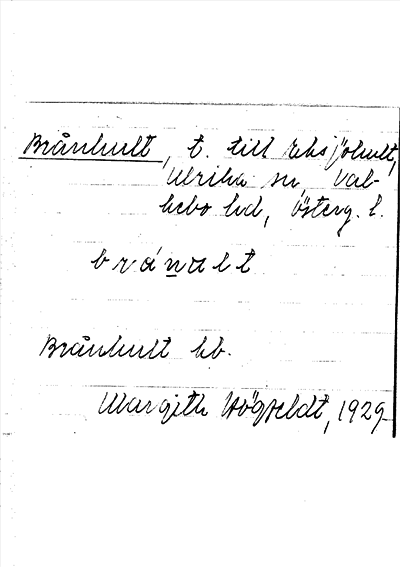 Brånhult, t. till Eksjöhult,
Ulrika sn, Val-
kebo hd, Österg. l.
bránalt
Brånhult kb.
Margith Högfeldt, 1929